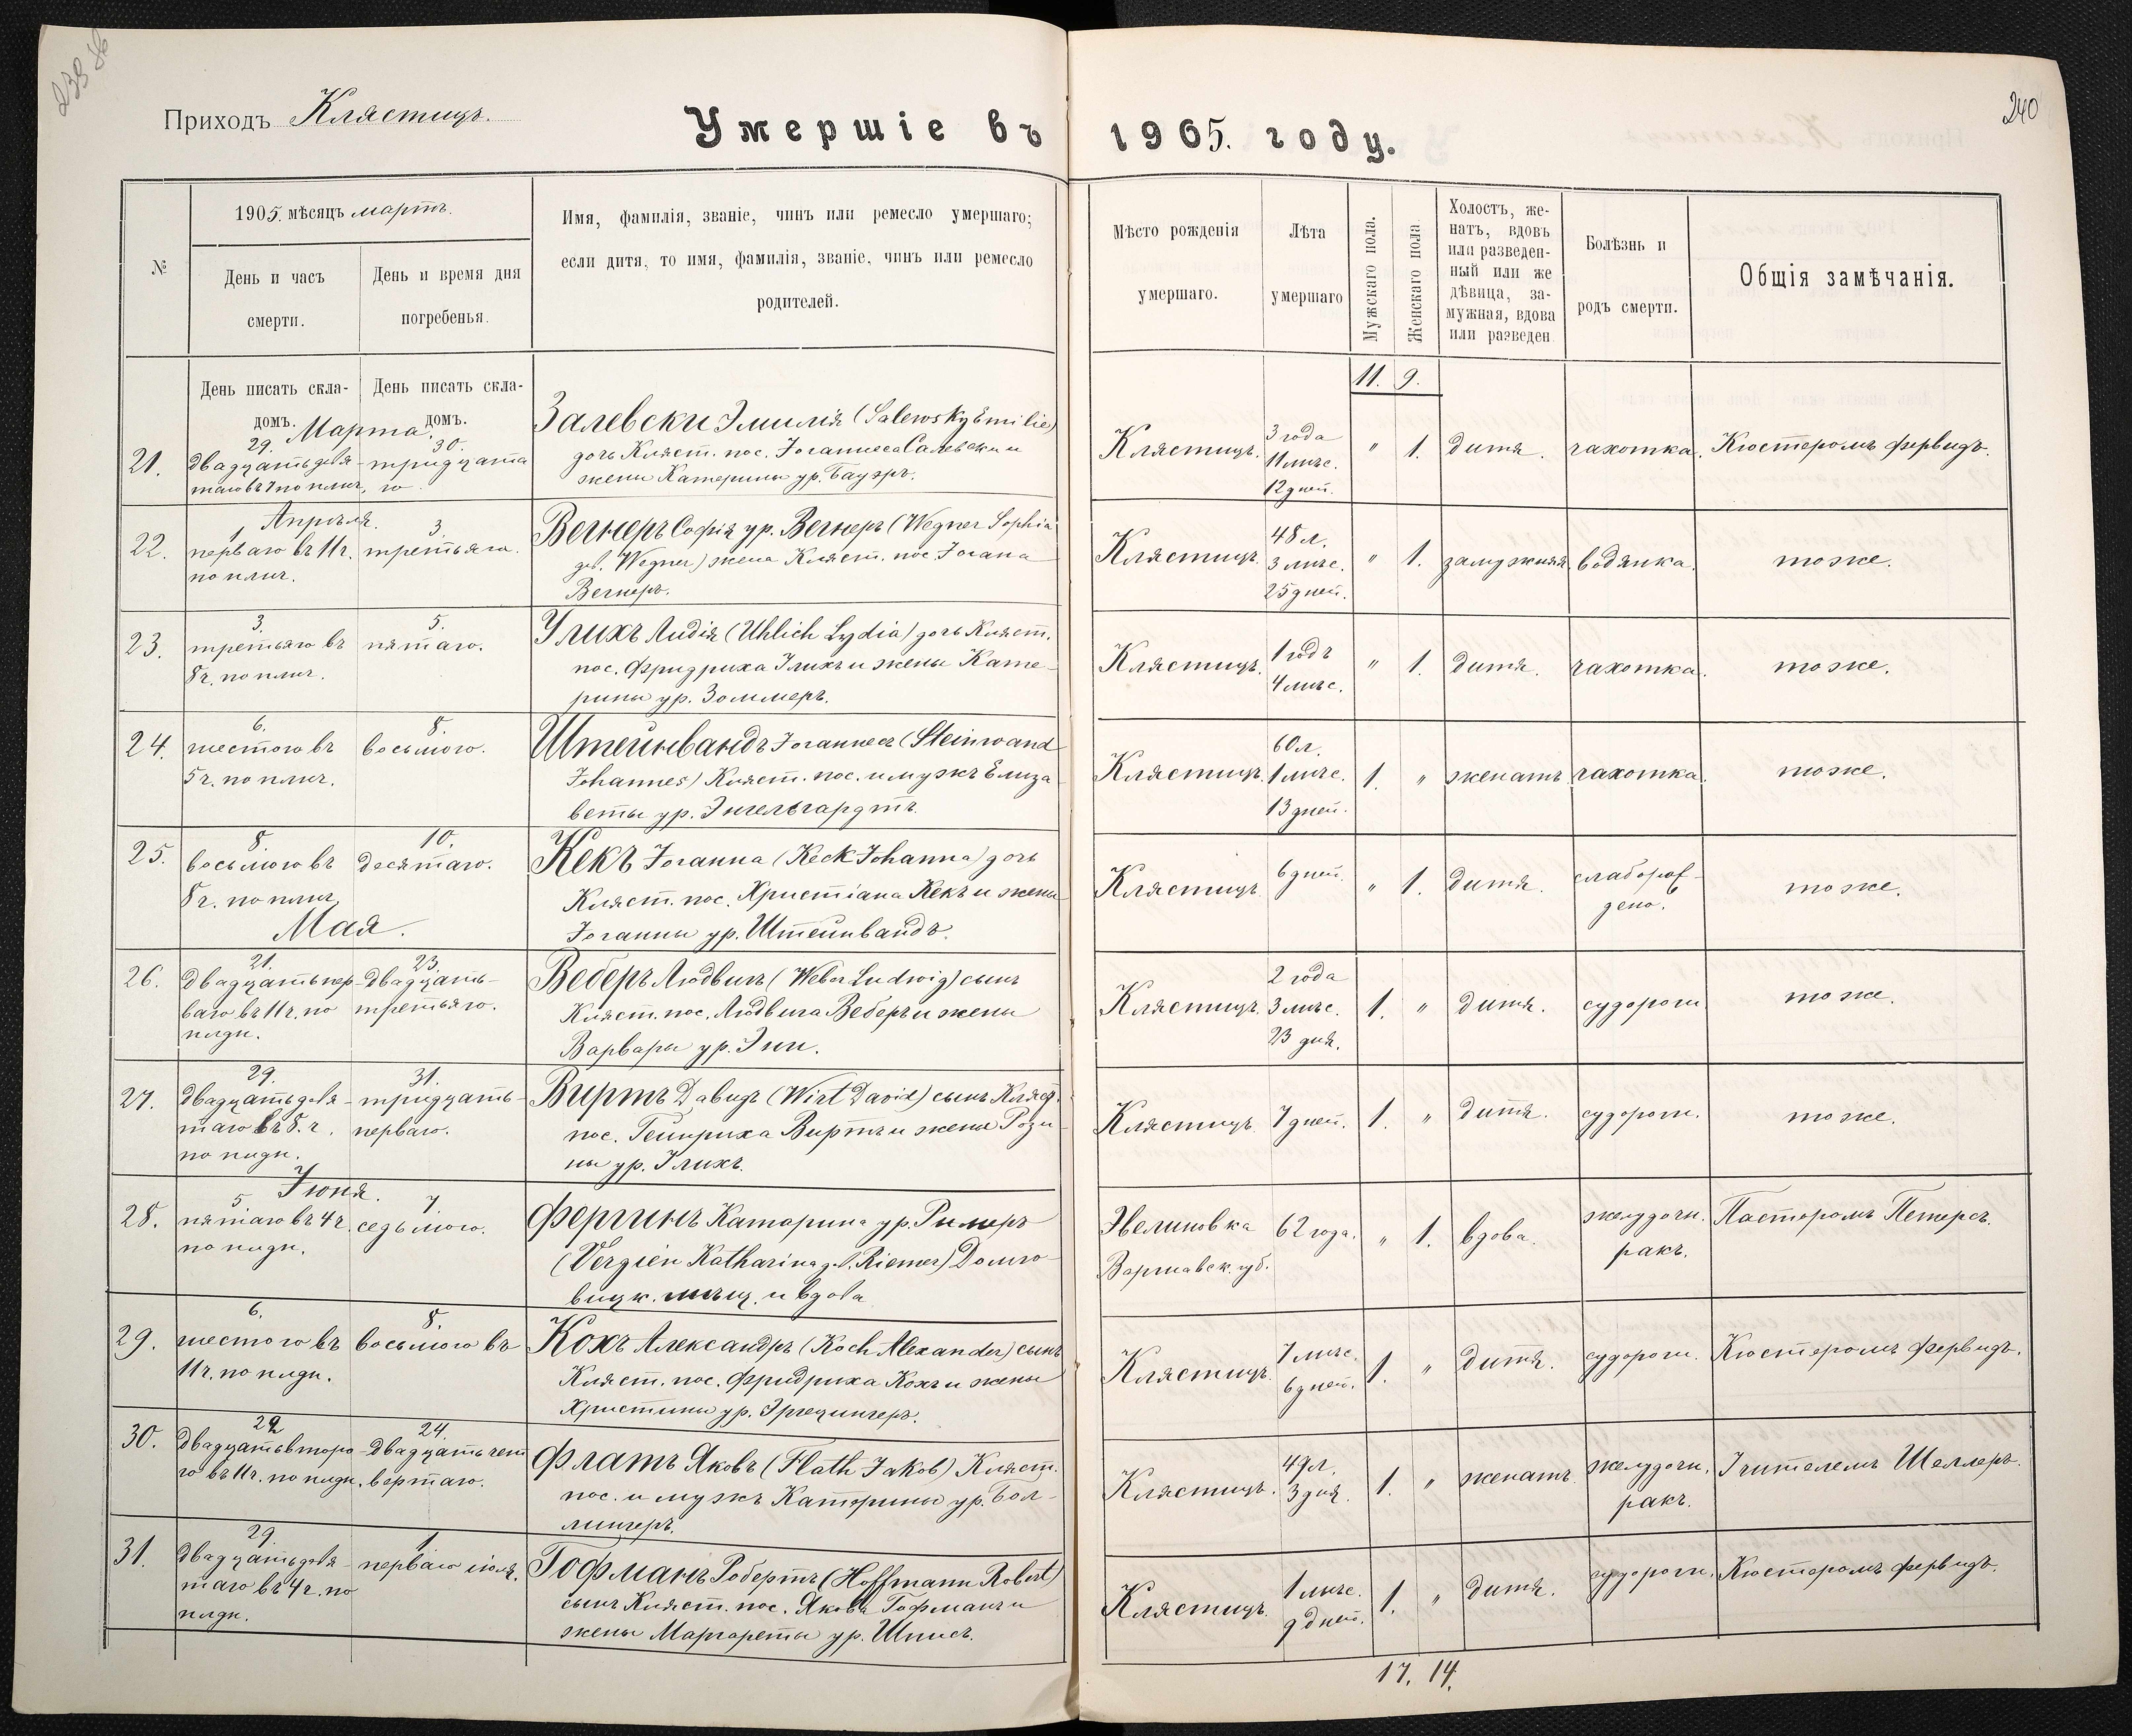 Приходъ Клястицъ.
Умершіе въ 1905. году.
240
№
1905. мѣсяцъ мартъ.
День и часъ смерти.
День и время дня погребенья.
Имя, фамилія, званіе, чинъ или ремесло умершаго;
если дитя, то имя, фамилія, званіе, чинъ или ремесло
родителей.
Мѣсто рожденія
умершаго.
Лѣта
умершаго
Мужскаго пола.
Женскаго пола
Холостъ, же-
натъ, вдовъ
или разведен-
ный или же
дѣвица, за-
мужная, вдова
или разведен
Болѣзнь и
родъ смерти.
Общія замѣчанія.
День писать скла-
домъ.
День писать скла-
домъ.
11. 9.
Марта.
21.
29.
двадцатьдевя-
таго въ 7 по плнч.
30.
тридцата
го
Залевски Эмилія (Salewsky Emilie)
дочь Кляст. пос. Іоганнеса Салевски и
жены Катерины ур. Бауэръ.
Клястицъ.
3 года
11 мѣс.
12 дней.
" 1.
дитя.
чахотка.
Кюстеромъ Фервидъ.
Апрѣля.
22.
1
перваго въ 11 ч.
по плнч.
3.
третьяго.
Вегнеръ Софія ур. Вегнеръ (Wegner Sophia
geb. Wegner) жена Кляст. пос. Іогана
Вегнеръ.
Клястицъ.
48 л.
3 мѣс.
25 дней.
" 1.
замужняя
водянка.
тоже.
23.
3.
третьяго въ
8 ч. по плнч.
5.
пятаго.
Улихъ Лидія (Uhlich Lydia) дочь Кляст.
пос. Фридриха Улихъ и жены Кате-
рины ур. Зоммеръ.
Клястицъ.
1 годъ
4 мѣс.
" 1.
дитя.
чахотка.
тоже.
24.
6.
шестого въ
5 ч. по плнч.
8.
восьмого.
Штейнвандъ Іоганнесъ (Steinwand
Johannes) Кляст. пос. и мужъ Елиза-
веты ур. Энгельгардтъ.
Клястицъ.
60 л.
1 мѣс.
13 дней.
1. "
женатъ
чахотка.
тоже.
25.
8.
восьмого въ
8 ч. по плнч
10.
десятаго.
Кекъ Іоганна (Keck Johanna) дочь
Кляст. пос. Христіана Кекъ и жены
Іоганны ур. Штейнвандъ.
Клястицъ
6 дней.
" 1.
дитя.
тоже.
Мая.
26.
21.
двадцатьпер-
ваго въ 11 ч. по
плдн.
23.
двадцать-
третьяго.
Веберъ Людвигъ (Weber Ludwig) сынъ
Кляст. пос. Людвига Веберъ и жены
Варвары ур.
Клястицъ.
2 года
3 мѣс.
23 дня.
1. "
дитя.
судороги
тоже.
27.
29.
двадцатьдевя-
таго въ 8. ч.
по плдн.
31.
тридцать-
перваго.
Виртъ Давидъ (Wirt David) сынъ Кляст.
пос. Гейнриха Виртъ и жены Рози-
ны ур. Улихъ.
Клястицъ
7 дней.
1. "
дитя.
судороги.
тоже.
Іюня.
28.
5
пятаго въ 4 ч
по плдн.
7.
седьмого.
Фергинъ Катарина ур. Римеръ
(Vergien Katharina geb. Riemer) Домго-
вицк. мѣщ. и вдова
Эвелиновка
Варшавск. губ.
62 года.
" 1.
вдова.
желудочн.
ракъ.
Пасторомъ Петерсъ.
29.
6.
шестого въ
11 ч. по плдн.
8.
восьмого въ
Кохъ Александръ (Koch Alexander) сынъ
Кляст. пос. Фридриха Кохъ и жены
Христины ур.
Клястицъ
7 мѣс.
6 дней.
1. "
дитя.
судороги.
Кюстеромъ Фервидъ.
30.
22
двадцатьвторо-
го въ 11 ч. по плдн.
24.
двадцатьчет
вертаго.
Флатъ Яковъ (Flath Jakob) Кляст.
пос. и мужъ Катерины ур. Бол-
лингеръ.
Клястицъ.
49 л.
3 дня.
1. "
женатъ
желудочн.
ракъ.
Учителемъ Шеллеръ.
31.
29.
двадцатьдевя-
таго въ 4 ч. по
плдн.
1.
перваго іюля.
Гофманъ Робертъ (Hoffmann Robert)
сынъ Кляст. пос. Якова Гофманъ и
жены Маргареты ур. Шписъ.
Клястицъ.
1 мѣс.
9 дней.
1. "
дитя.
судороги.
Кюстеромъ Фервидъ.
17. 14.